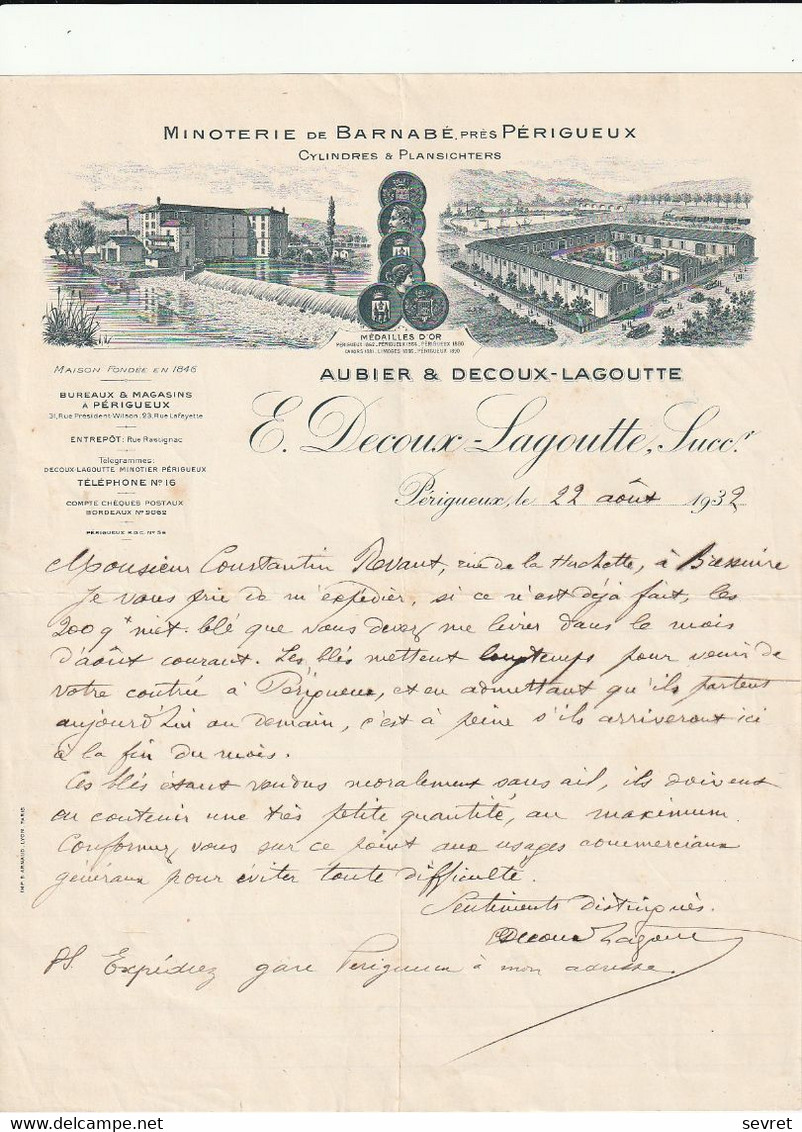 MINOTERIE DE BARNABÉ, PRÈS PÉRIGUEUX
CYLINDRES & PLANSICHTERS
MÉDAILLES D'OR
MAISON FONDÉE EN 1846
BUREAUX & MAGASINS
À PÉRIGUEUX
31, Rue Président-Wilson, 23, Rue Lafayette
ENTREPÔT: Rue Rastignac
Télégrammes:
DECOUX-LAGOUTTE MINOTIER PÉRIGUEUX
TÉLÉPHONE Nº 16
COMPTE CHÈQUES POSTAUX
BORDEAUX Nº 9062
PÉRIGUEUX R.D.C. Nº 38
AUBIER & DECOUX-LAGOUTTE
E. Decoux-Lagoutte, Succr.
Périgueux, le 22 août 1932
Monsieur Constantin Revaut, rue de la Huchette, à Bressuire
Je vous prie de m'expédier, si ce n'est déjà fait, les
200 qx net blé que vous devez me livrer dans le mois
d'août courant. Les blés mettent longtemps pour venir de
votre contrée à Périgueux, et en admettant qu'ils partent
aujourd'hui ou demain, c'est à peine s'ils arriveront ici
à la fin du mois.
Ces blés étant vendus moralement sans ail, ils doivent
en contenir une très petite quantité, au maximum.
Conformez vous sur ce point aux usages commerciaux
généraux pour éviter toute difficulté.
Sentiments distingués.
Decoux Lagoutte
PS. Expédiez gare Périgueux à mon adresse.
IMP. B. ARNAUD, LYON, PARIS
sevret